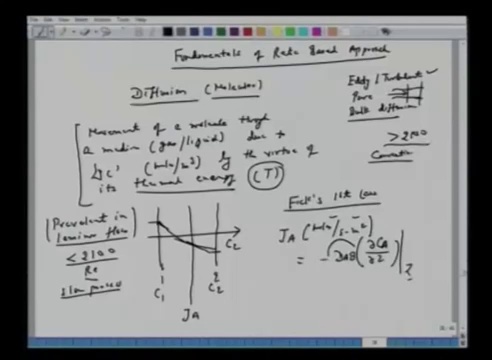 Fundamentals of Rate Based Approach
Diffusion (Molecular)
Eddy / Turbulent
Pore
Bulk diffusion
> 2100
Convection
Movement of a molecule through
a medium (gas/liquid) due to
'Δc' (mole/m³) by the virtue of
its thermal energy (T)
Prevalent in
laminar flow
< 2100
Re
slow process
1
C1
2
C2
C2
JA
Fick's 1st Law
JA (mole/s-m²)
= - DAB (∂CA/∂z)|z